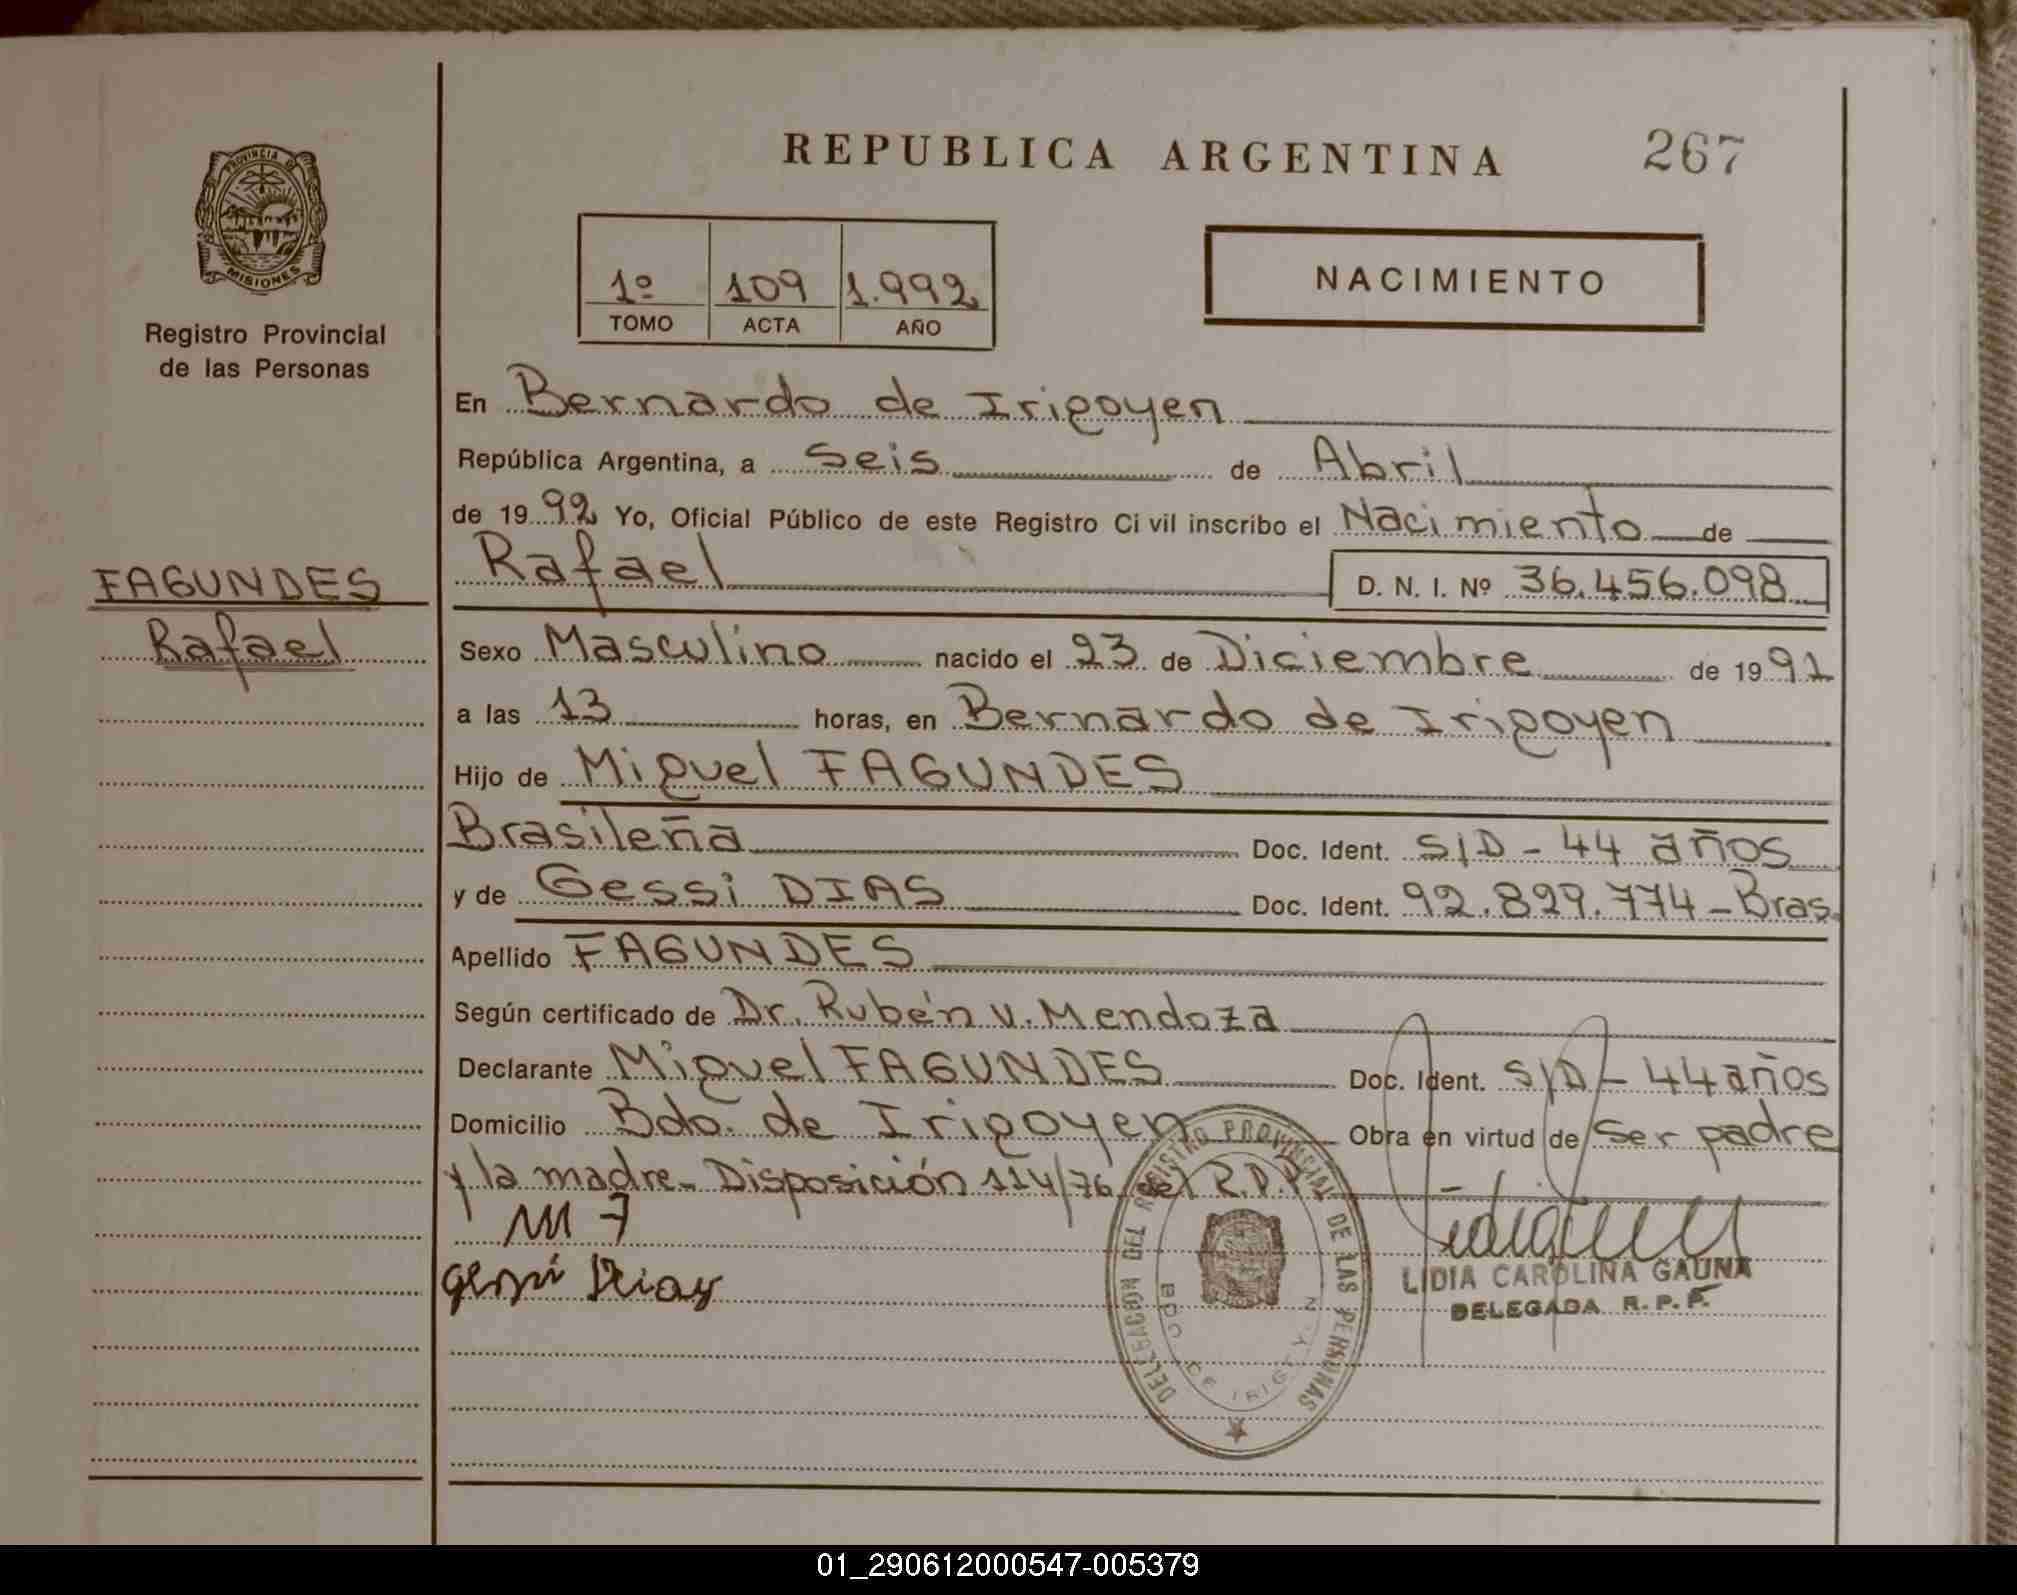 REPUBLICA ARGENTINA 267
PROVINCIA DE
MISIONES
Registro Provincial
de las Personas
1º 109 1.992
TOMO ACTA AÑO
NACIMIENTO
En Bernardo de Irigoyen
República Argentina, a Seis de Abril
de 1992 Yo, Oficial Público de este Registro Civil inscribo el Nacimiento de
FAGUNDES
Rafael
Rafael D. N. I. Nº 36.456.098
Sexo Masculino nacido el 23 de Diciembre de 1991
a las 13 horas, en Bernardo de Irigoyen
Hijo de Miguel FAGUNDES
Brasileña Doc. Ident. S/D - 44 años
y de Gessi DIAS Doc. Ident. 92.829.774 - Bras.
Apellido FAGUNDES
Según certificado de Dr. Rubén V. Mendoza
Declarante Miguel FAGUNDES Doc. Ident. S/D - 44 años
Domicilio Bdo. de Irigoyen Obra en virtud de Ser padre
y la madre - Disposición 114/76 del R.P.P.
M F
Gessi Dias
LIDIA CAROLINA GAUNA
DELEGADA R. P. P.
DELEGACION DEL REGISTRO PROVINCIAL DE LAS PERSONAS
BDO DE IRIGOYEN
01_290612000547-005379